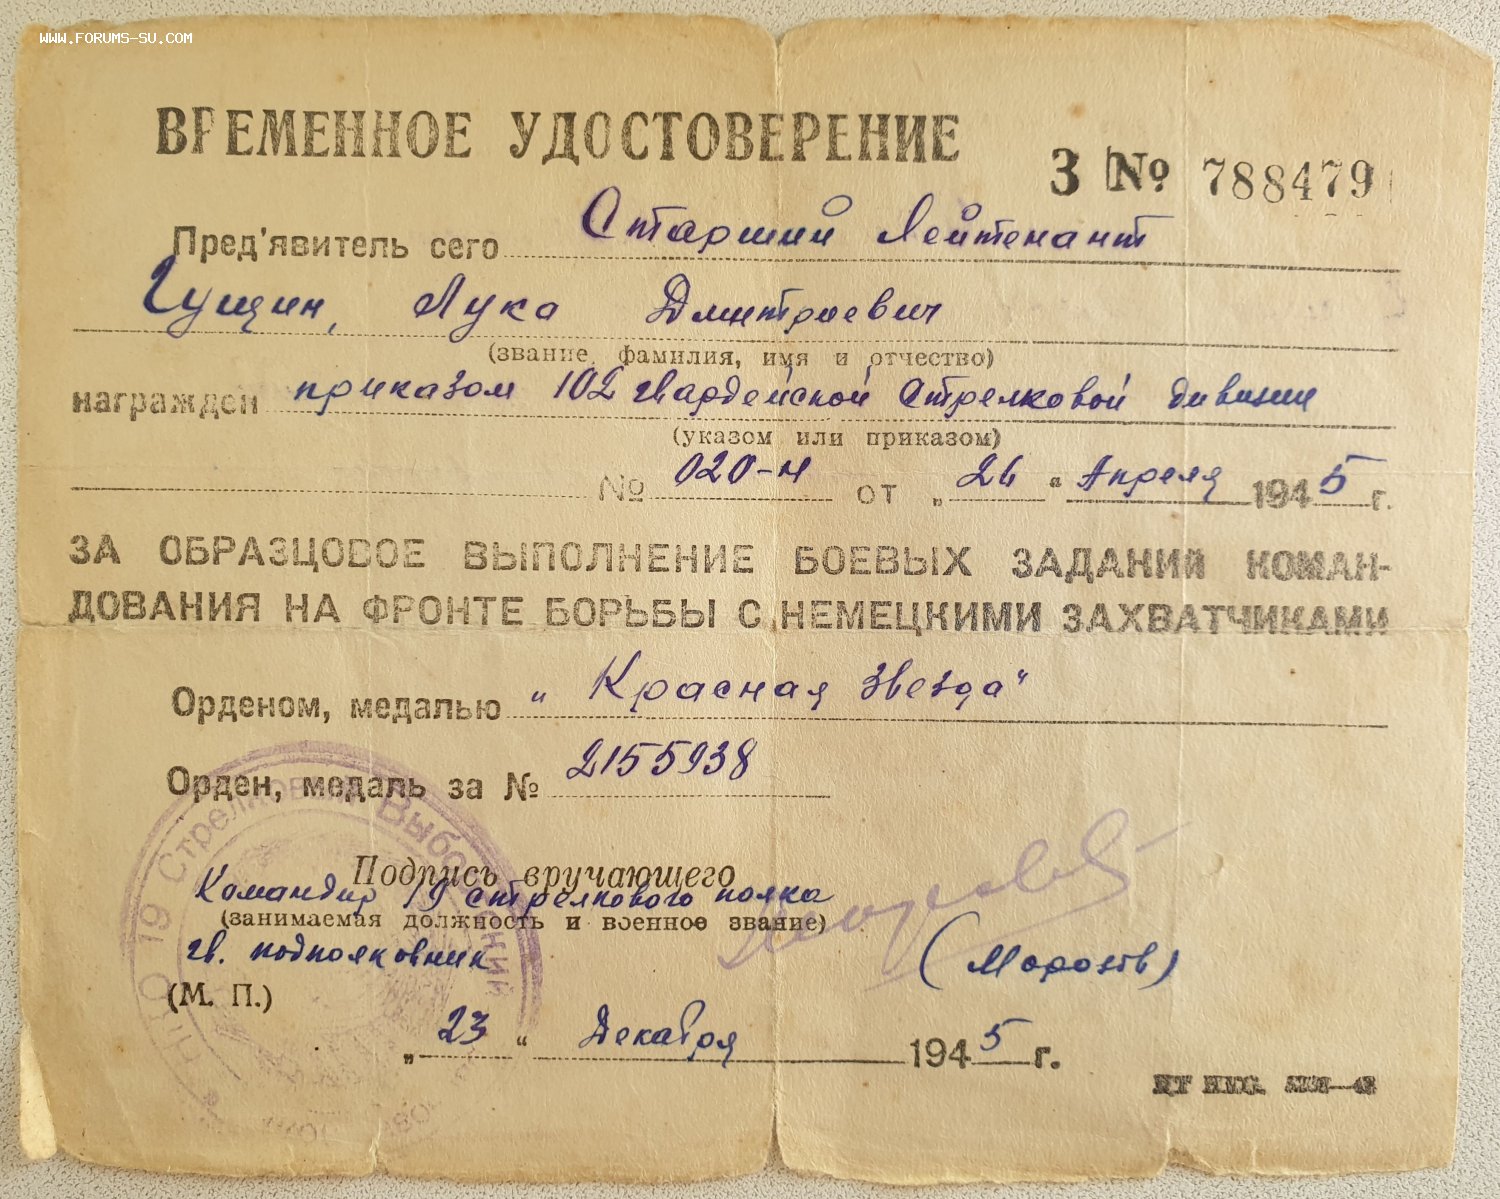 WWW.FORUMS-SU.COM
ВРЕМЕННОЕ УДОСТОВЕРЕНИЕ
З № 788479
Пред'явитель сего Старший Лейтенант
Гущин, Лука Дмитриевич
(звание, фамилия, имя и отчество)
награжден приказом 102 гвардейской Стрелковой дивизии
(указом или приказом)
№ 020-н от „26“ Апреля 1945 г.
ЗА ОБРАЗЦОВОЕ ВЫПОЛНЕНИЕ БОЕВЫХ ЗАДАНИЙ КОМАН-
ДОВАНИЯ НА ФРОНТЕ БОРЬБЫ С НЕМЕЦКИМИ ЗАХВАТЧИКАМИ
Орденом, медалью „Красная звезда“
Орден, медаль за № 2155938
Подпись вручающего
Командир 19 стрелкового полка
(занимаемая должность и военное звание)
гв. подполковник (Морозов)
(М. П.)
„23“ Декабря 1945 г.
19 Стрелковый Выборгский